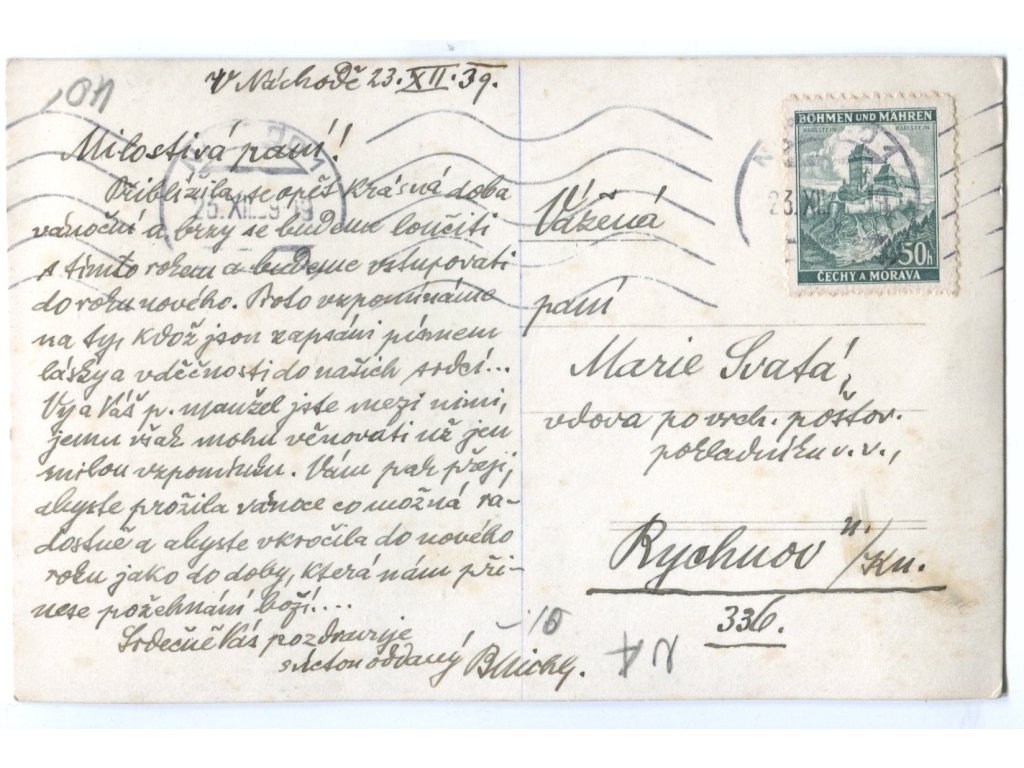 V Náchodě 23.XII.39.
Milostivá paní!
Přiblížila se opět krásná doba
vánoční a brzy se budeme loučiti
s tímto rokem a budeme vstupovati
do roku nového. Proto vzpomínáme
na ty, kdož json zapsáni písmem
lásky a vděčnosti do našich srdcí...
Vy a Váš p. manžel jste mezi nimi,
jemu však mohu věnovati už jen
milou vzpomínku. Vám pak přeji,
abyste prožila vánoce co možná ra-
dostně a abyste vkročila do nového
roku jako do doby, která nám při-
nese požehnání boží....
Srdečně Vás pozdravuje
oddaný
BÖHMEN UND MÄHREN
KARLSTEIN KARLSTEIN
50h
ČECHY A MORAVA
23.XII
Vážená
paní
Marie Svatá,
vdova po vrch. poštov.
pokladníku v.v.,
Rychnov n./Kn.
336.